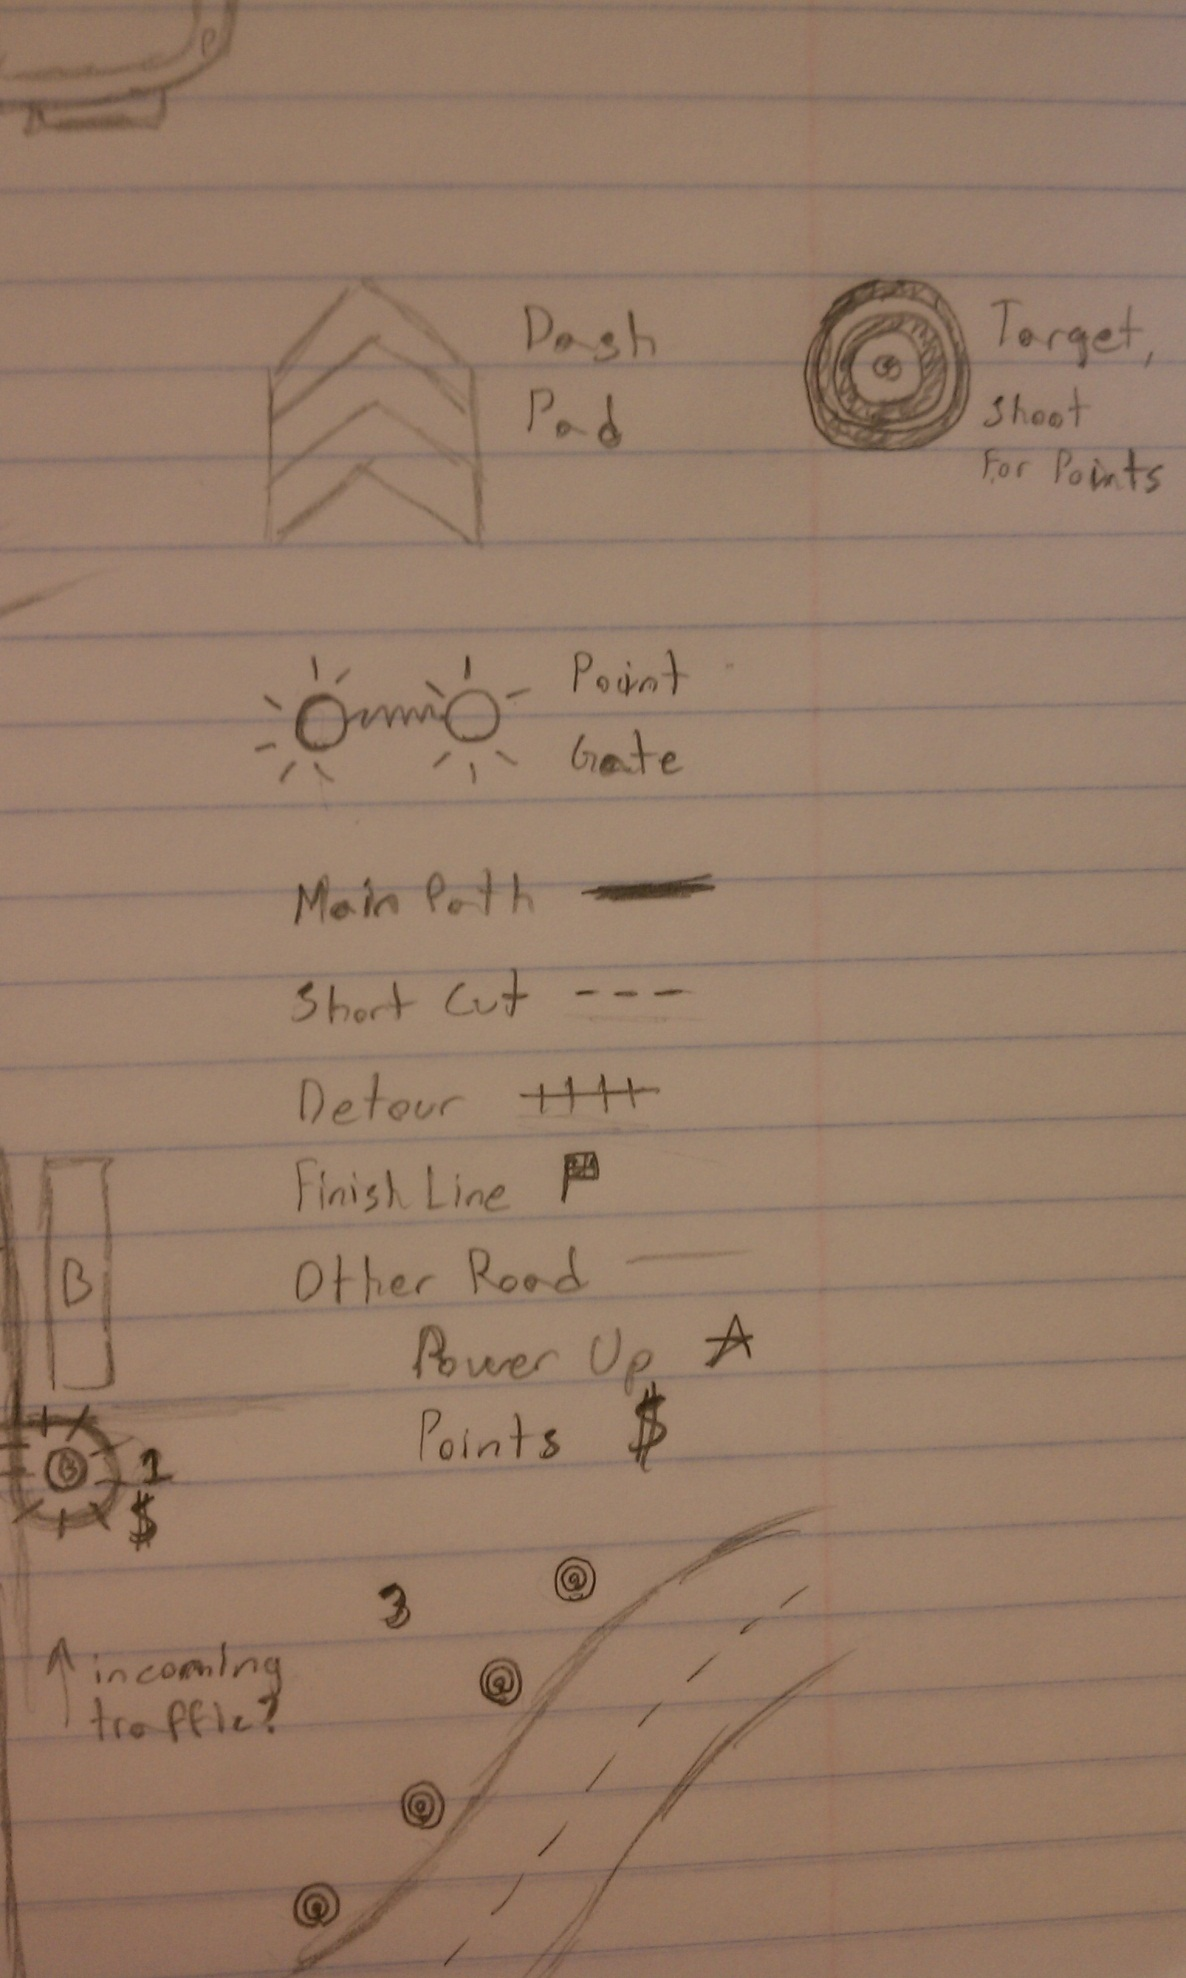 Dash
Pad
Target,
shoot
For Points
Point
Gate
Main Path
Short Cut
Detour
Finish Line
B
Other Road
Power Up
Points $
B
1
$
3
incoming
traffic?